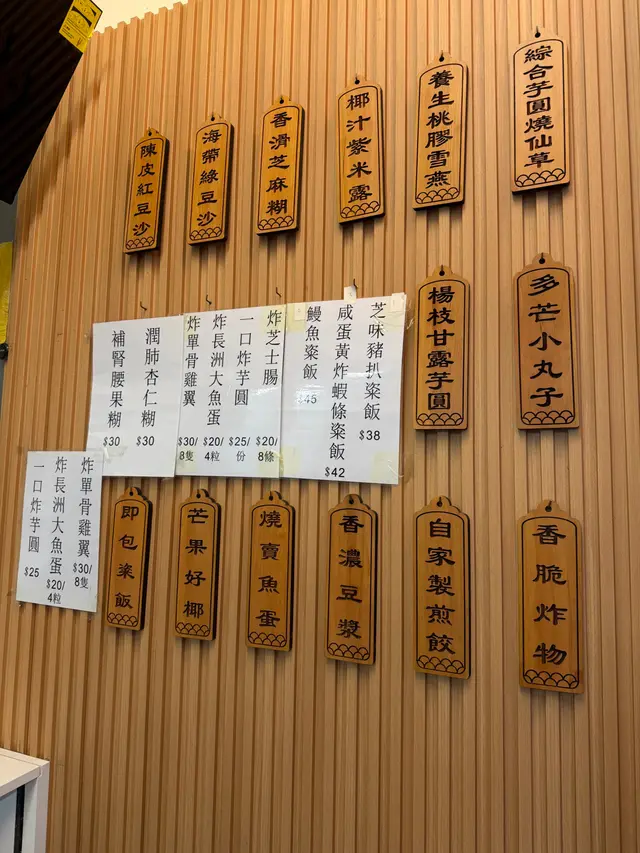 綜合芋圓燒仙草
養生桃膠雪燕
椰汁紫米露
香滑芝麻糊
海帶綠豆沙
陳皮紅豆沙
多芒小丸子
楊枝甘露芋圓
芝味豬扒粢飯
$38
咸蛋黃炸蝦條粢飯
$42
鰻魚粢飯
$45
炸芝士腸
$20/
8條
一口炸芋圓
$25/
份
炸長洲大魚蛋
$20/
4粒
炸單骨雞翼
$30/
8隻
潤肺杏仁糊
$30
補腎腰果糊
$30
香脆炸物
自家製煎餃
香濃豆漿
燒賣魚蛋
芒果好椰
即包粢飯
炸單骨雞翼
$30/
8隻
炸長洲大魚蛋
$20/
4粒
一口炸芋圓
$25